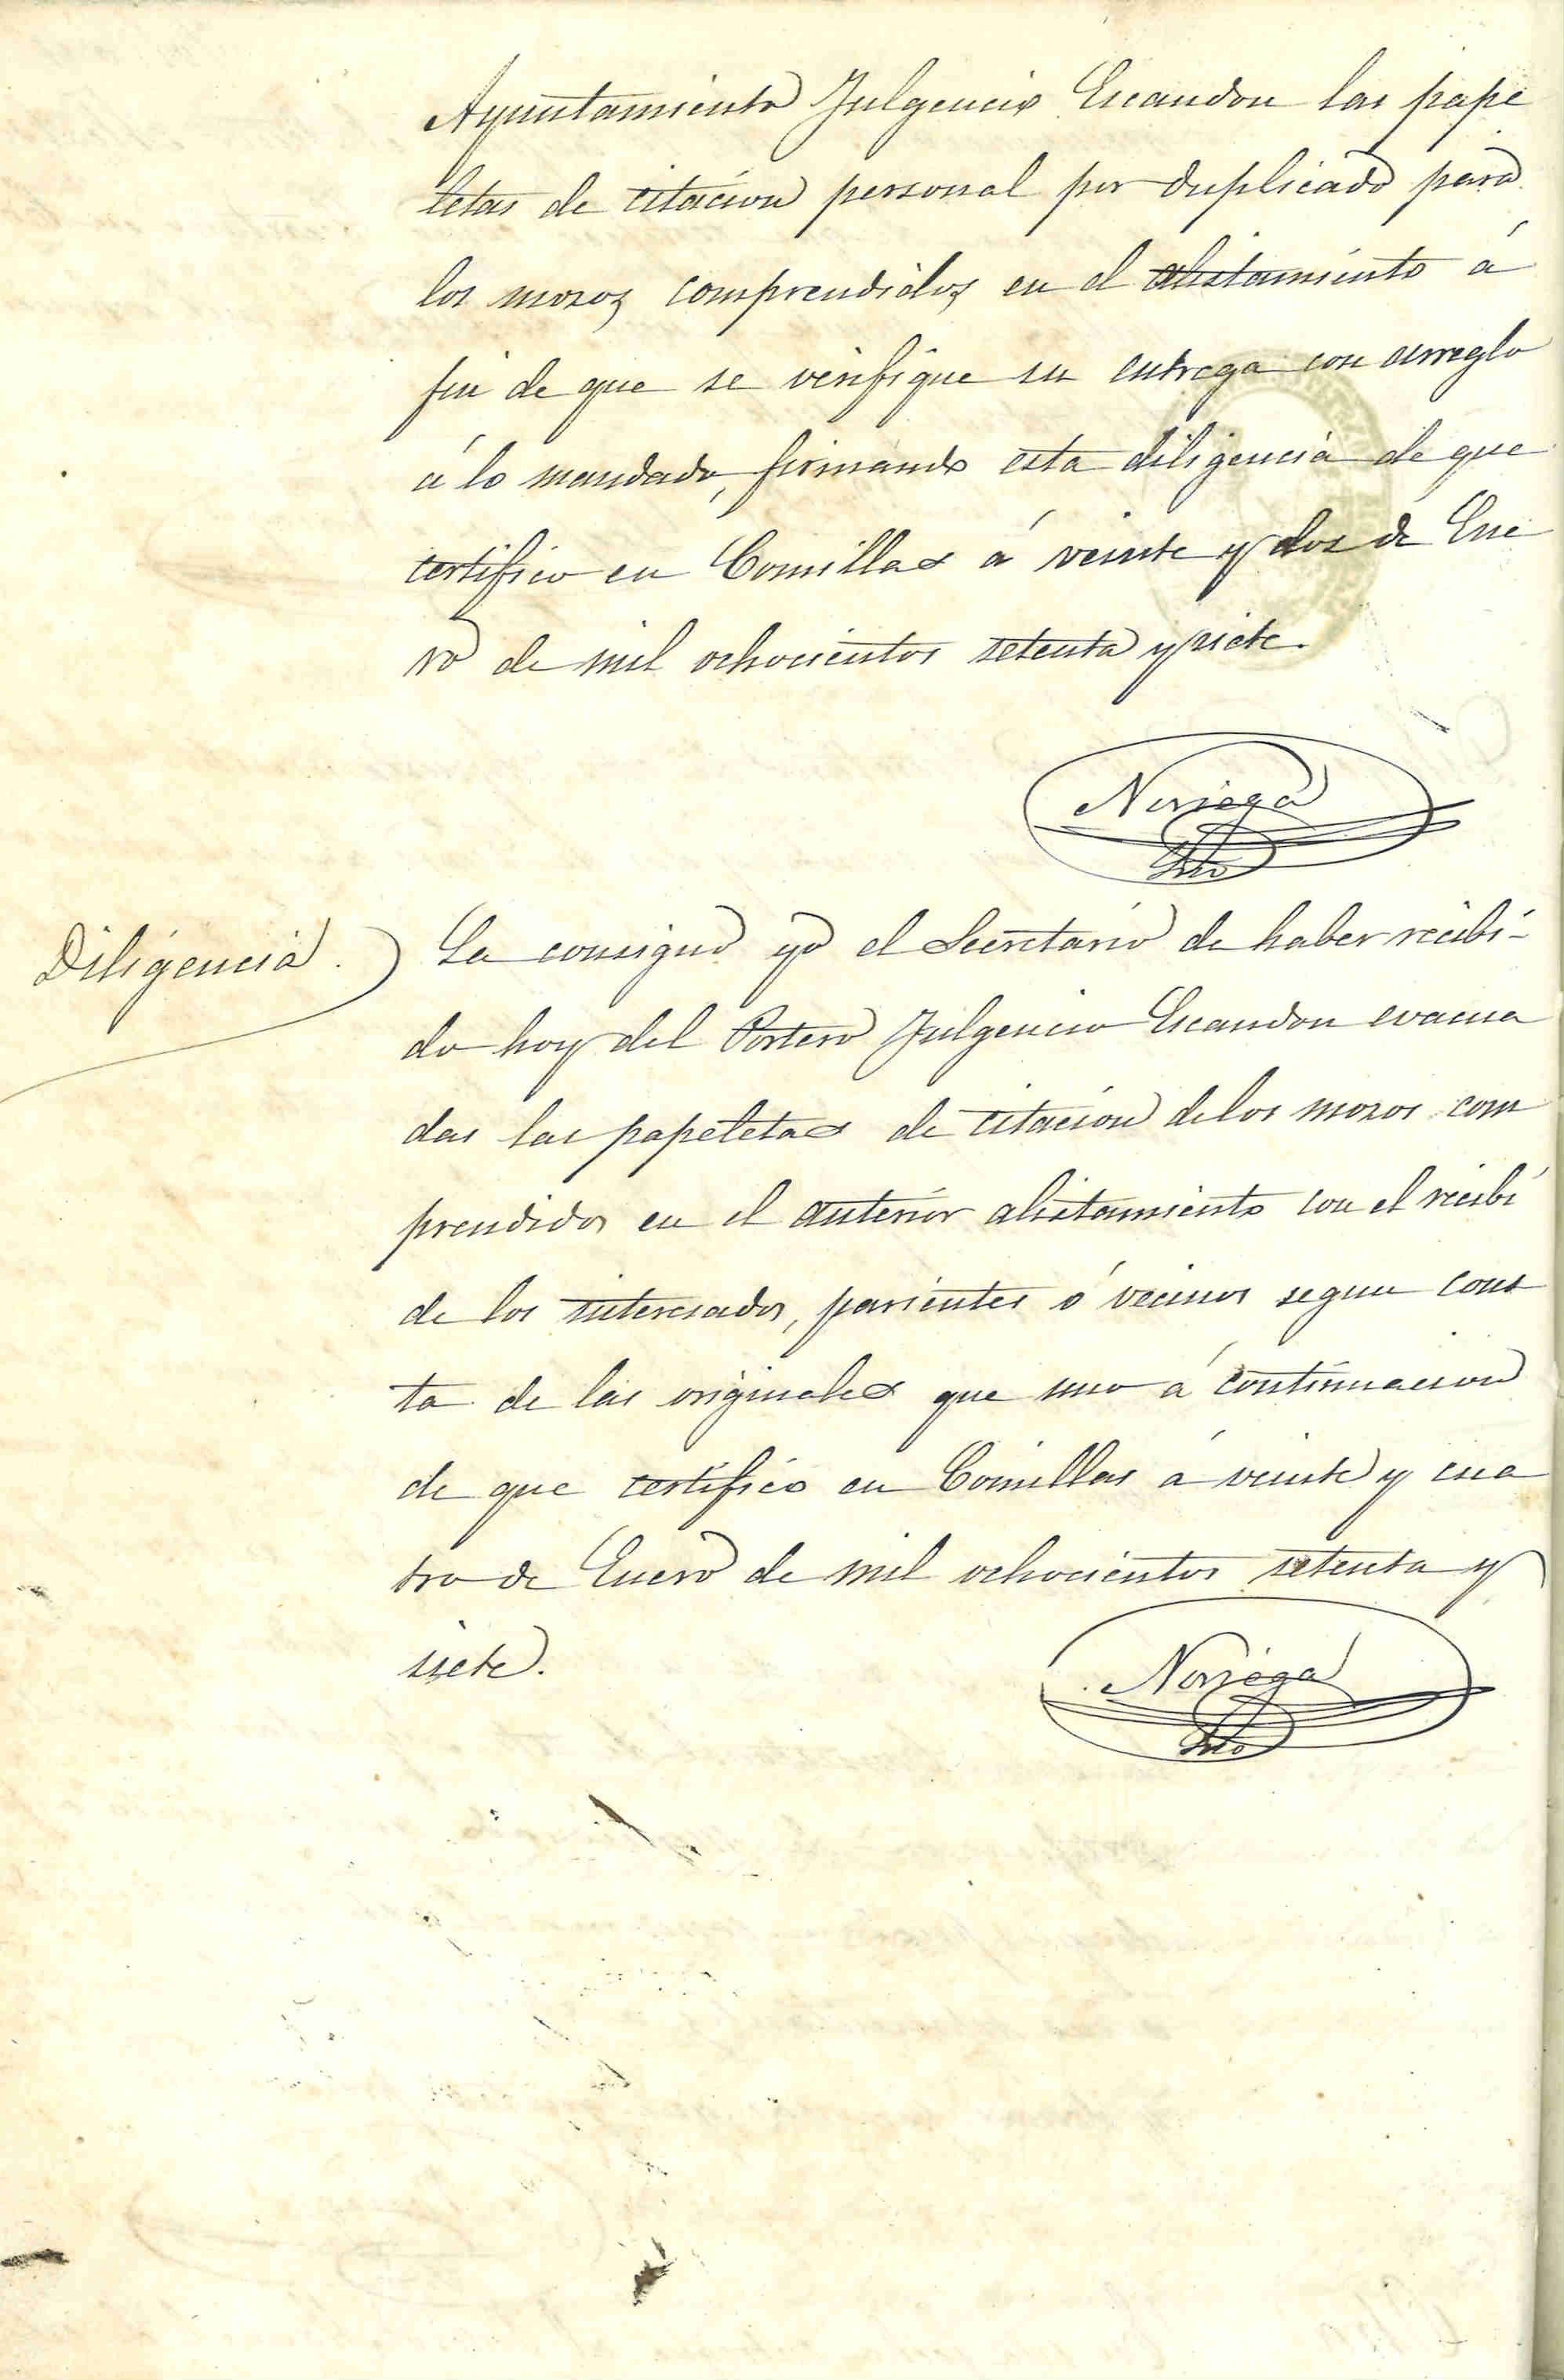 Ayuntamiento Fulgencio Escandon las pape
letas de citacion personal por duplicado para
los mozos comprendidos en el alistamiento á
fin de que se verifique su entrega con arreglo
á lo mandado, firmando esta diligencia de que
certifico en Comillas á veinte y dos de Ene
ro de mil ochocientos setenta y siete.
Noriega
Srio
Diligencia.
La consigno yo el Secretario de haber recibi-
do hoy del Portero Fulgencio Escandon evacua
das las papeletas de citacion de los mozos com
prendidos en el anterior alistamiento con el recibí
de los interesados, parientes ó vecinos segun cons
ta de las originales que uno á continuacion
de que certifico en Comillas á veinte y cua
tro de Enero de mil ochocientos setenta y
siete.
Noriega
Srio